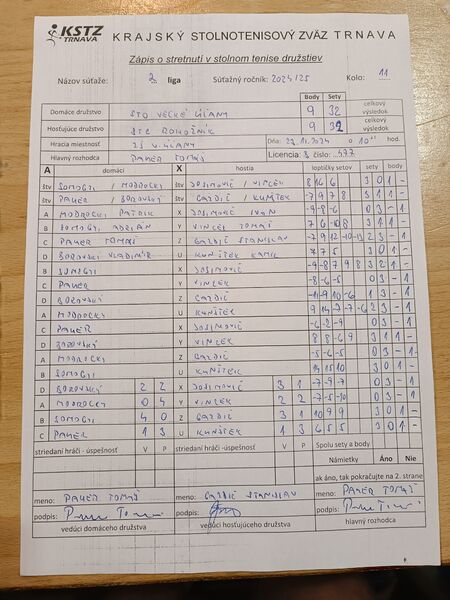 KSTZ
TRNAVA
KRAJSKÝ STOLNOTENISOVÝ ZVÄZ TRNAVA
Zápis o stretnutí v stolnom tenise družstiev
Názov súťaže: 2 liga Súťažný ročník: 2024/25 Kolo: 11
Body Sety
Domáce družstvo STO VEĽKÉ ÚĽANY 9 32 celkový
Hosťujúce družstvo STC ROHOŽNÍK 9 32 výsledok
Hracia miestnosť ZŠ V. ÚĽANY Dňa: 2024 o 10 hod.
Hlavný rozhodca PAUER TOMÁŠ Licencia: 3 číslo: 477
A domáci X hostia loptičky setov sety body
štv SOMOGYI / MODROCKÝ štv DOSIMOVIČ / VINCEK 8 16 6 3 0 1 -
štv PAUER / BOROVSKÝ štv GAZDIČ / KUNŠTEK -7 9 7 8 3 1 1 -
A MODROCKÝ PATRIK X DOSIMOVIČ IVAN -9 -8 -6 0 3 - 1
B SOMOGYI ADRIÁN Y VINCEK TOMÁŠ 7 6 -10 8 3 1 1 -
C PAUER TOMÁŠ Z GAZDIČ STANISLAV -7 9 12 -10 -11 2 3 - 1
D BOROVSKÝ VLADIMÍR U KUNŠTEK KAMIL 7 7 5 3 0 1 -
B SOMOGYI X DOSIMOVIČ -9 -8 7 9 8 3 2 1 -
C PAUER Y VINCEK -8 -6 -5 0 3 - 1
D BOROVSKÝ Z GAZDIČ -11 -9 10 -6 1 3 - 1
A MODROCKÝ U KUNŠTEK 2 3 - 1
C PAUER X DOSIMOVIČ -6 -2 -9 0 3 - 1
D BOROVSKÝ Y VINCEK 8 8 -6 9 3 1 1 -
A MODROCKÝ Z GAZDIČ -5 -6 -5 0 3 - 1
B SOMOGYI U KUNŠTEK 14 15 10 3 0 1 -
D BOROVSKÝ 2 2 X DOSIMOVIČ 3 1 -7 -9 -7 0 3 - 1
A MODROCKÝ 0 4 Y VINCEK 2 2 -7 -5 -10 0 3 - 1
B SOMOGYI 4 0 Z GAZDIČ 3 1 10 9 9 3 0 1 -
C PAUER 1 3 U KUNŠTEK 1 3 6 5 5 3 0 1 -
striedaní hráči - úspešnosť V P striedaní hráči - úspešnosť V P Spolu sety a body
Námietky Áno Nie
ak áno, tak pokračujte na 2. strane
meno: PAUER TOMÁŠ meno: GAZDIČ STANISLAV meno: PAUER TOMÁŠ
podpis: podpis: podpis:
vedúci domáceho družstva vedúci hosťujúceho družstva hlavný rozhodca